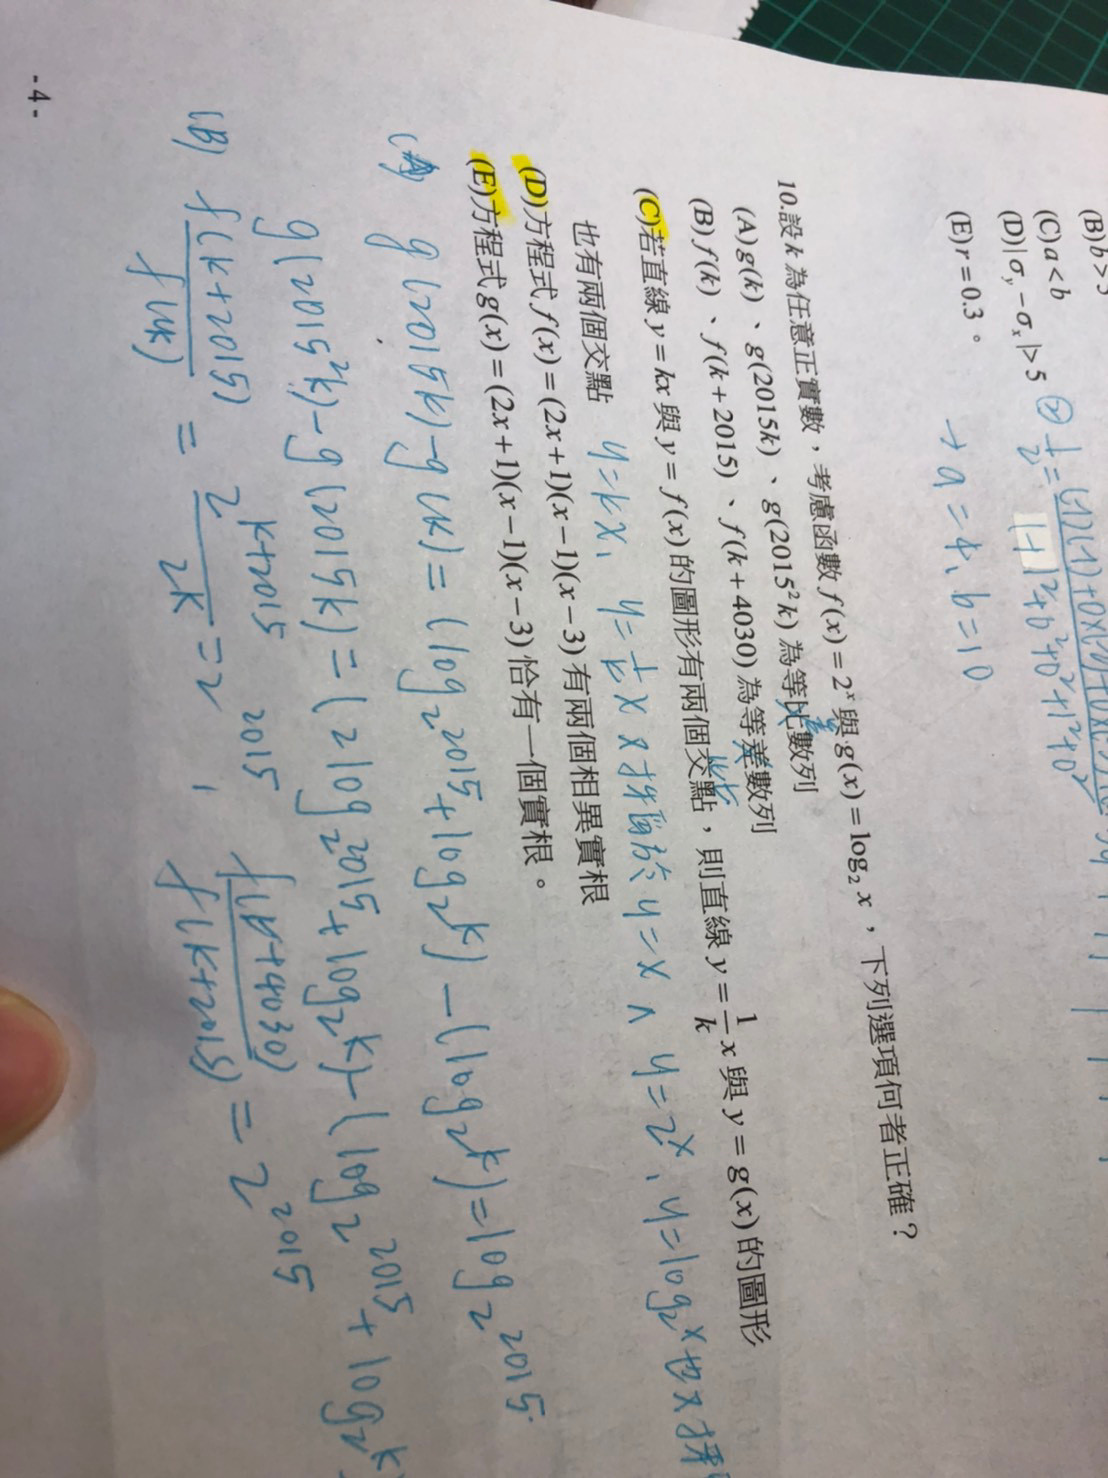 (B) b>5
(C) a<b
(D) |σy − σx|>5
(E) r = 0.3。
② 1/2 =
→ a = 4, b = 10
10.設 k 為任意正實數，考慮函數 f(x) = 2^x 與 g(x) = log₂ x，下列選項何者正確？
(A) g(k)、g(2015k)、g(2015²k) 為等比數列
差
(B) f(k)、f(k+2015)、f(k+4030) 為等差數列
比
(C) 若直線 y = kx 與 y = f(x) 的圖形有兩個交點，則直線 y = 1/k x 與 y = g(x) 的圖形
也有兩個交點 y = kx, y = 1/k x 對稱於 y = x ∧ y = 2^x, y = log₂x 也對稱
(D) 方程式 f(x) = (2x+1)(x−1)(x−3) 有兩個相異實根
(E) 方程式 g(x) = (2x+1)(x−1)(x−3) 恰有一個實根。
(A) g(2015k) − g(k) = (log₂2015 + log₂k) − (log₂k) = log₂2015.
g(2015²k) − g(2015k) = (2log₂2015 + log₂k) − (log₂2015 + log₂k
(B) f(k+2015)/f(k) = 2^(k+2015)/2^k = 2^2015, f(k+4030)/f(k+2015) = 2^2015
- 4 -